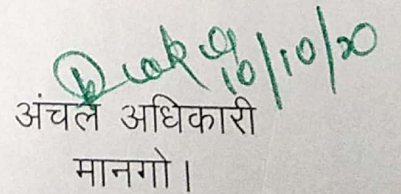 10/10/20
अंचल अधिकारी
मानगो।